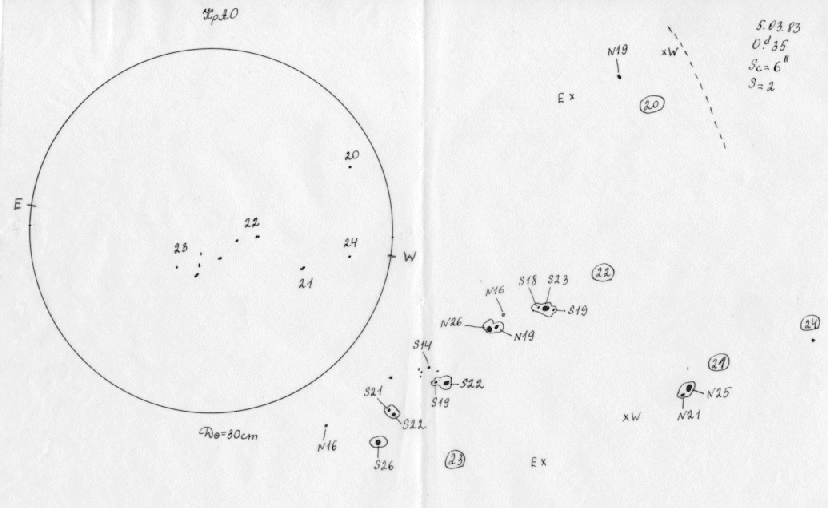 5.03.83
0.d35
Sc=6"
S=2
N19
xW
E x
20
20
E
23
22
24
21
W
D⊙=30cm
22
S18 S23
N16
S19
N26
N19
24
S14
21
S21
S22
S19
N25
S22
N21
xW
N16
S26
23
E x